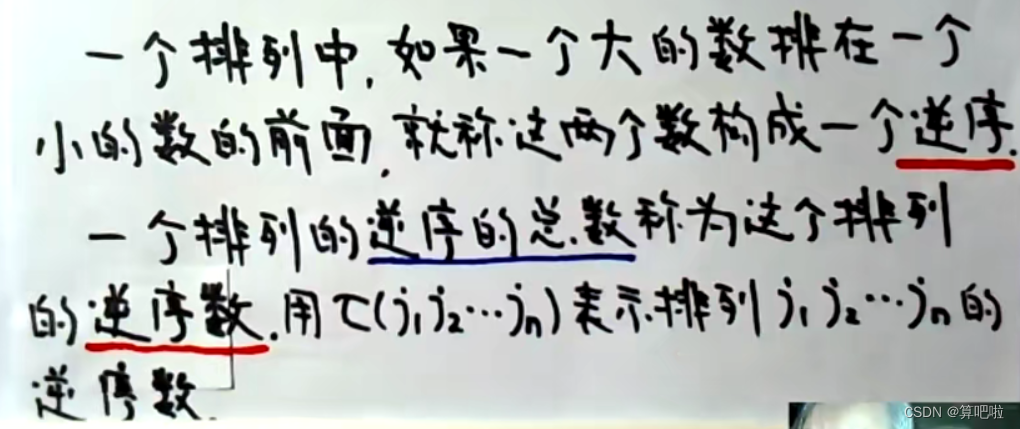 一个排列中,如果一个大的数排在一个
小的数的前面,就称这两个数构成一个逆序.
一个排列的逆序的总数称为这个排列
的逆序数.用τ(j₁j₂…jₙ)表示排列j₁j₂…jₙ的
逆序数.
CSDN @算吧啦